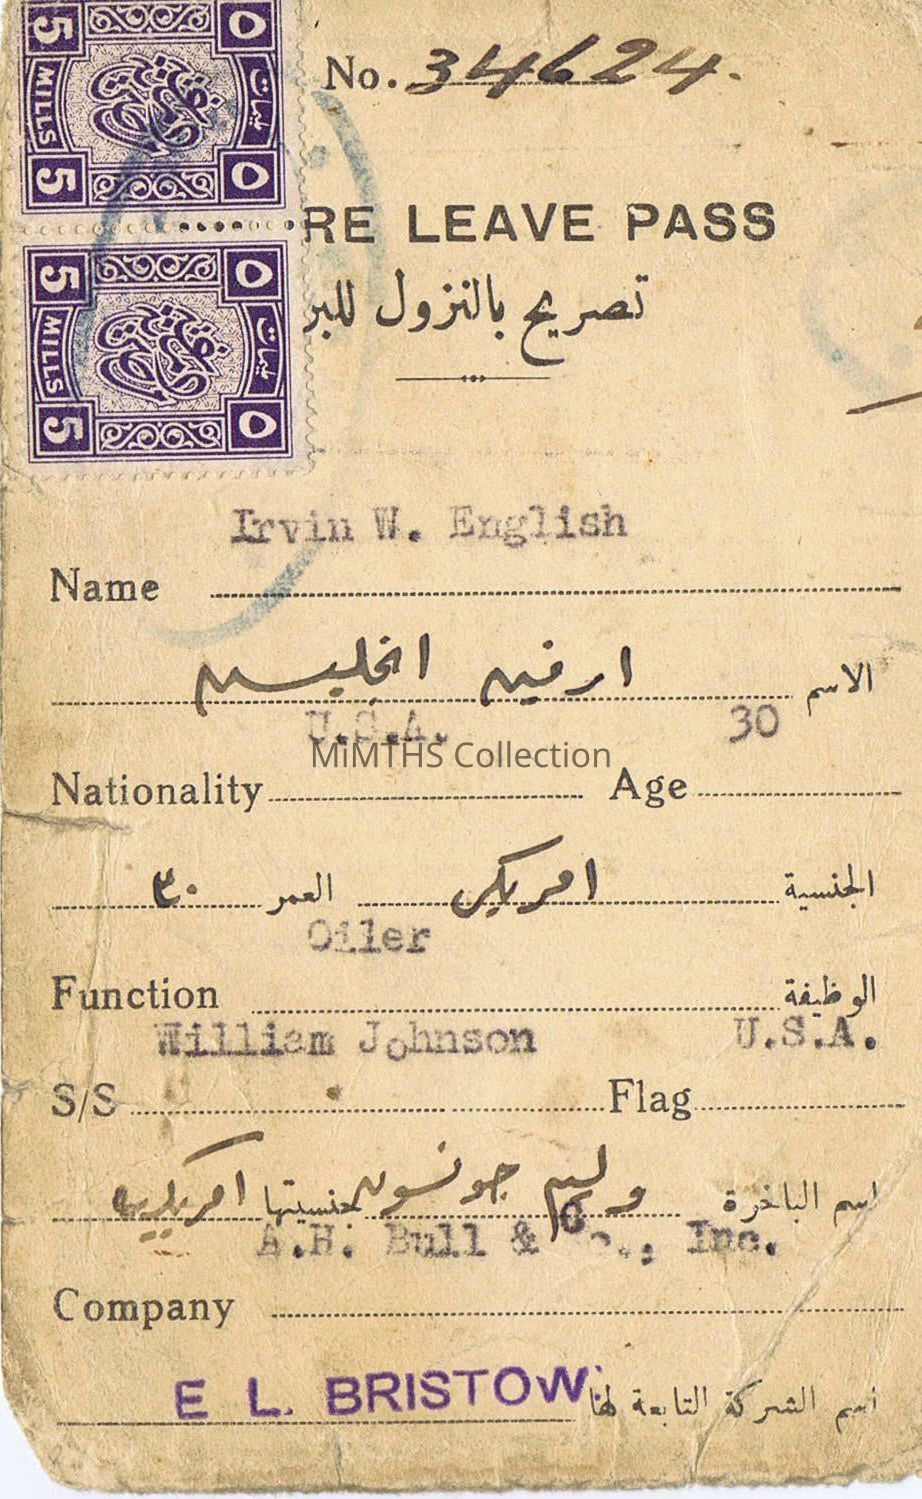 5 ٥
MILLS مليمات
5 ٥
5 ٥
MILLS مليمات
5 ٥
No. 34624.
RE LEAVE PASS
تصريح بالنزول للبر
Irvin W. English
Name
الاسم ارفين انجليس
U.S.A. 30
MiMTHS Collection
Nationality Age
الجنسية امريكى العمر ٣٠
Oiler
Function الوظيفة
William Johnson U.S.A.
S/S Flag
اسم الباخرة وليم جونسون جنسيتها امريكيه
A.H. Bull & Co., Inc.
Company
اسم الشركة التابعة لها E L. BRISTOW